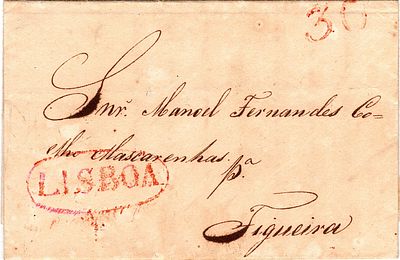 30
Snr. Manoel Fernandes Co=
elho Mascarenhas.
pª
LISBOA
Figueira